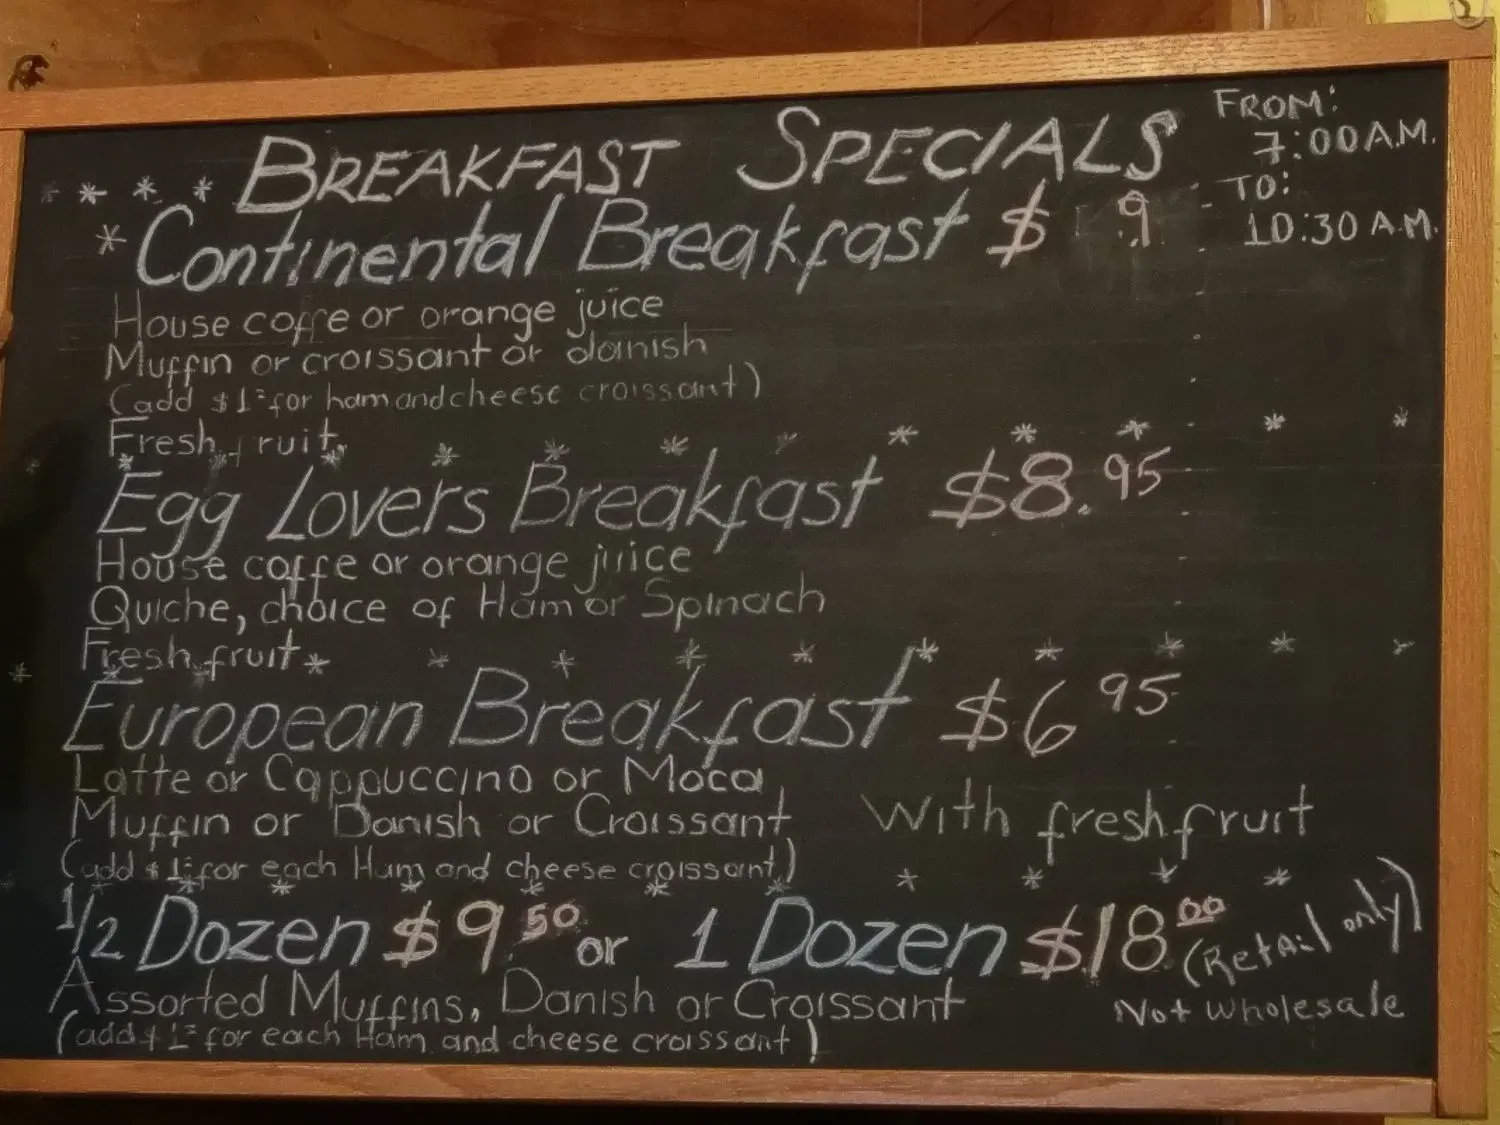 BREAKFAST SPECIALS
FROM:
7:00 A.M.
TO:
10:30 A.M.
Continental Breakfast $ 9
House coffe or orange juice
Muffin or croissant or danish
(add $1= for ham and cheese croissant)
Fresh fruit
Egg Lovers Breakfast $8.95
House coffe or orange juice
Quiche, choice of Ham or Spinach
Fresh fruit
European Breakfast $6 95
Latte or Cappuccino or Moca
Muffin or Danish or Croissant
With fresh fruit
(add $1= for each Ham and cheese croissant)
1/2 Dozen $9.50 or 1 Dozen $18.00
(Retail only)
Assorted Muffins, Danish or Croissant
Not wholesale
(add $1= for each Ham and cheese croissant)